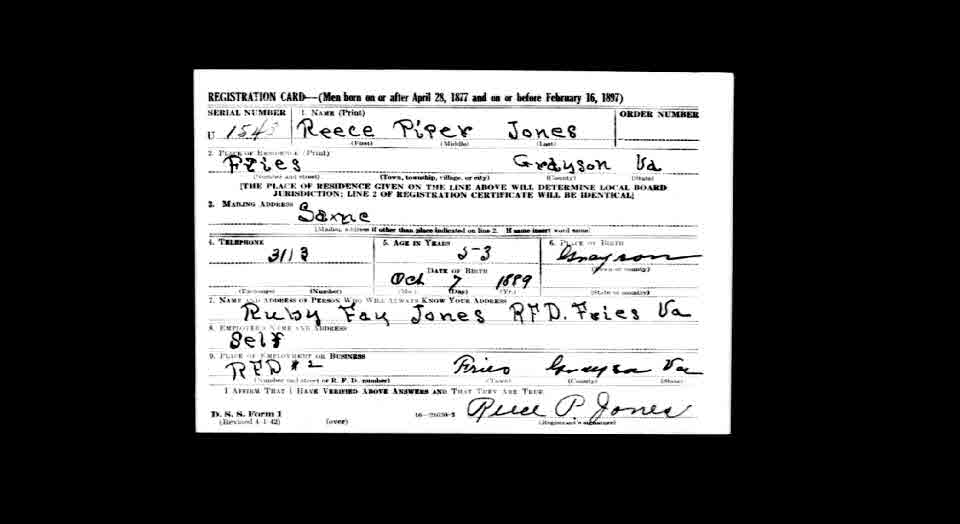 REGISTRATION CARD—(Men born on or after April 28, 1877 and on or before February 16, 1897)
SERIAL NUMBER 1. NAME (Print) ORDER NUMBER
U 1543 Reece Piper Jones
(First) (Middle) (Last)
2. PLACE OF RESIDENCE (Print)
Fries Grayson Va
(Number and street) (Town, township, village, or city) (County) (State)
[THE PLACE OF RESIDENCE GIVEN ON THE LINE ABOVE WILL DETERMINE LOCAL BOARD
JURISDICTION; LINE 2 OF REGISTRATION CERTIFICATE WILL BE IDENTICAL]
3. MAILING ADDRESS
Same
[Mailing address if other than place indicated on line 2. If same insert word same]
4. TELEPHONE 5. AGE IN YEARS 6. PLACE OF BIRTH
3113 53 Grayson
DATE OF BIRTH (Town or county)
Oct 7 1889
(Exchange) (Number) (Mo.) (Day) (Yr.) (State or country)
7. NAME AND ADDRESS OF PERSON WHO WILL ALWAYS KNOW YOUR ADDRESS
Ruby Fay Jones RFD. Fries Va
8. EMPLOYER'S NAME AND ADDRESS
Self
9. PLACE OF EMPLOYMENT OR BUSINESS
RFD #2 Fries Grayson Va
(Number and street or R. F. D. number) (Town) (County) (State)
I AFFIRM THAT I HAVE VERIFIED ABOVE ANSWERS AND THAT THEY ARE TRUE
D. S. S. Form 1 Reece P. Jones
(Revised 4-1-42) (over) (Registrant's signature)